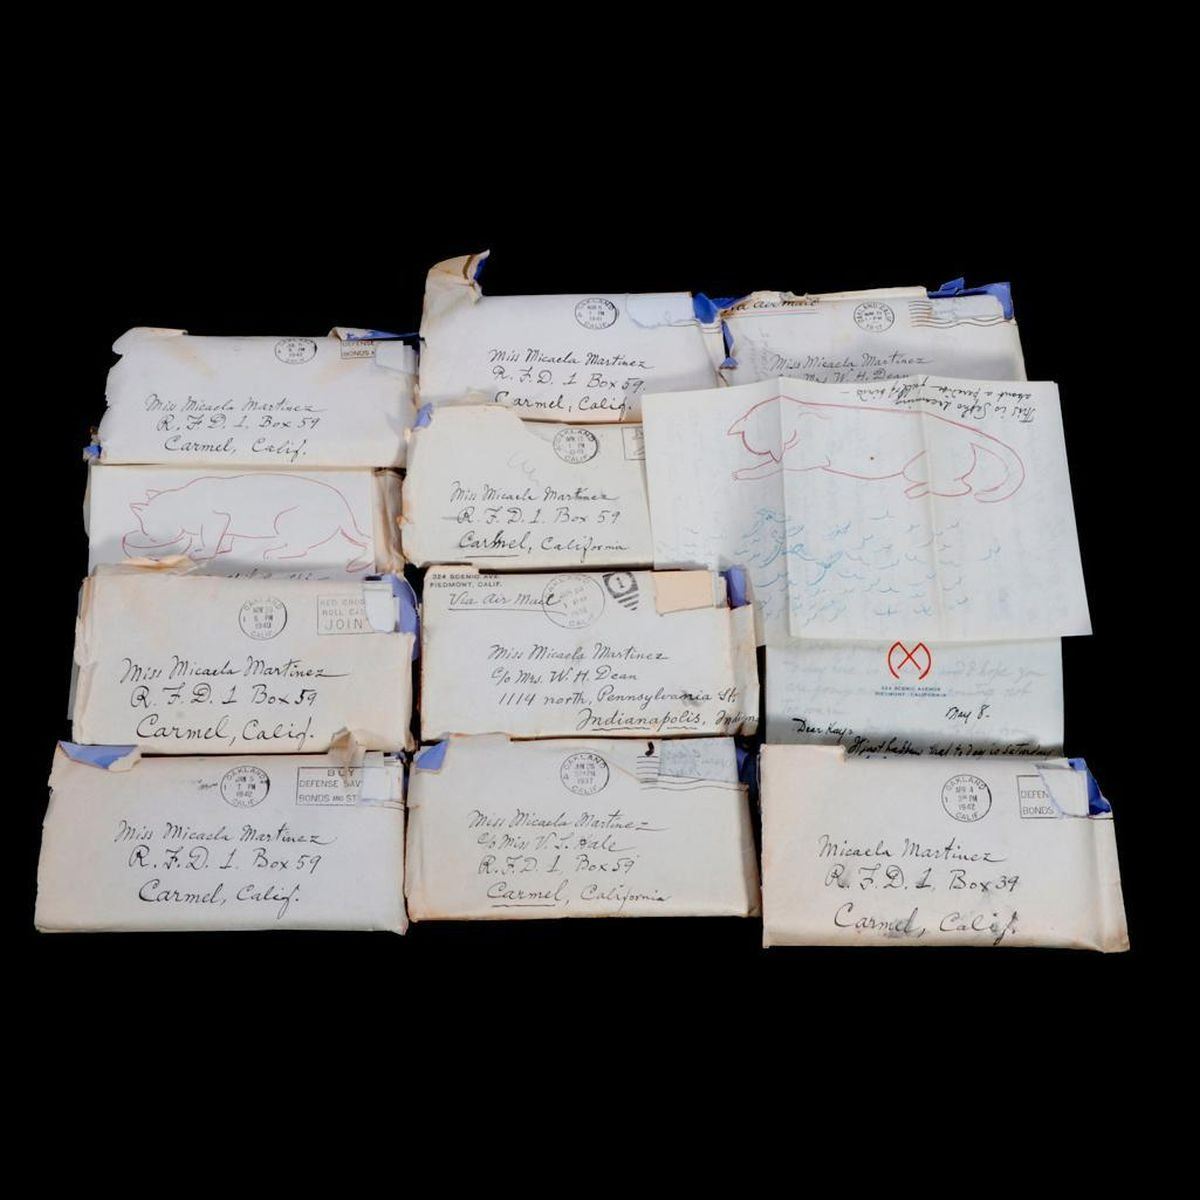 OAKLAND
CALIF.
1942
DEFENSE
BONDS
Miss Micaela Martinez
R.F.D. 1. Box 59
Carmel, Calif.
OAKLAND
1941
CALIF.
Miss Micaela Martinez
R.F.D. 1 Box 59.
Carmel, Calif.
Via Air Mail
OAKLAND CALIF.
Miss Micaela Martinez
Mrs. W. H. Dean
This is Sapho dreaming
about a paradise full of birds -
OAKLAND
CALIF.
Miss Micaela Martinez
R.F.D. 1. Box 59
Carmel, California
OAKLAND
NOV 20
6 PM
1940
CALIF.
RED CROSS
ROLL CALL
JOIN
Miss Micaela Martinez
R.F.D. 1 Box 59
Carmel, Calif.
324 SCENIC AVE.
PIEDMONT, CALIF.
Via Air Mail
1
Miss Micaela Martinez
c/o Mrs. W. H. Dean
1114 north, Pennsylvania St.
Indianapolis,
X
324 SCENIC AVENUE
PIEDMONT, CALIFORNIA
May 8.
Dear Kay:
It just happens that to day is Saturday
OAKLAND
JAN 5
7 PM
1942
CALIF.
BUY
DEFENSE SAV
BONDS AND ST
Miss Micaela Martinez
R.F.D. 1 Box 59
Carmel, Calif.
OAKLAND
JAN 25
1937
CALIF.
Miss Micaela Martinez
c/o Miss V. L. Hale
R.F.D. 1, Box 59
Carmel, California
OAKLAND
APR 4
1942
CALIF.
DEFEN
BONDS
Micaela Martinez
R.F.D. 1, Box 39
Carmel, Calif.